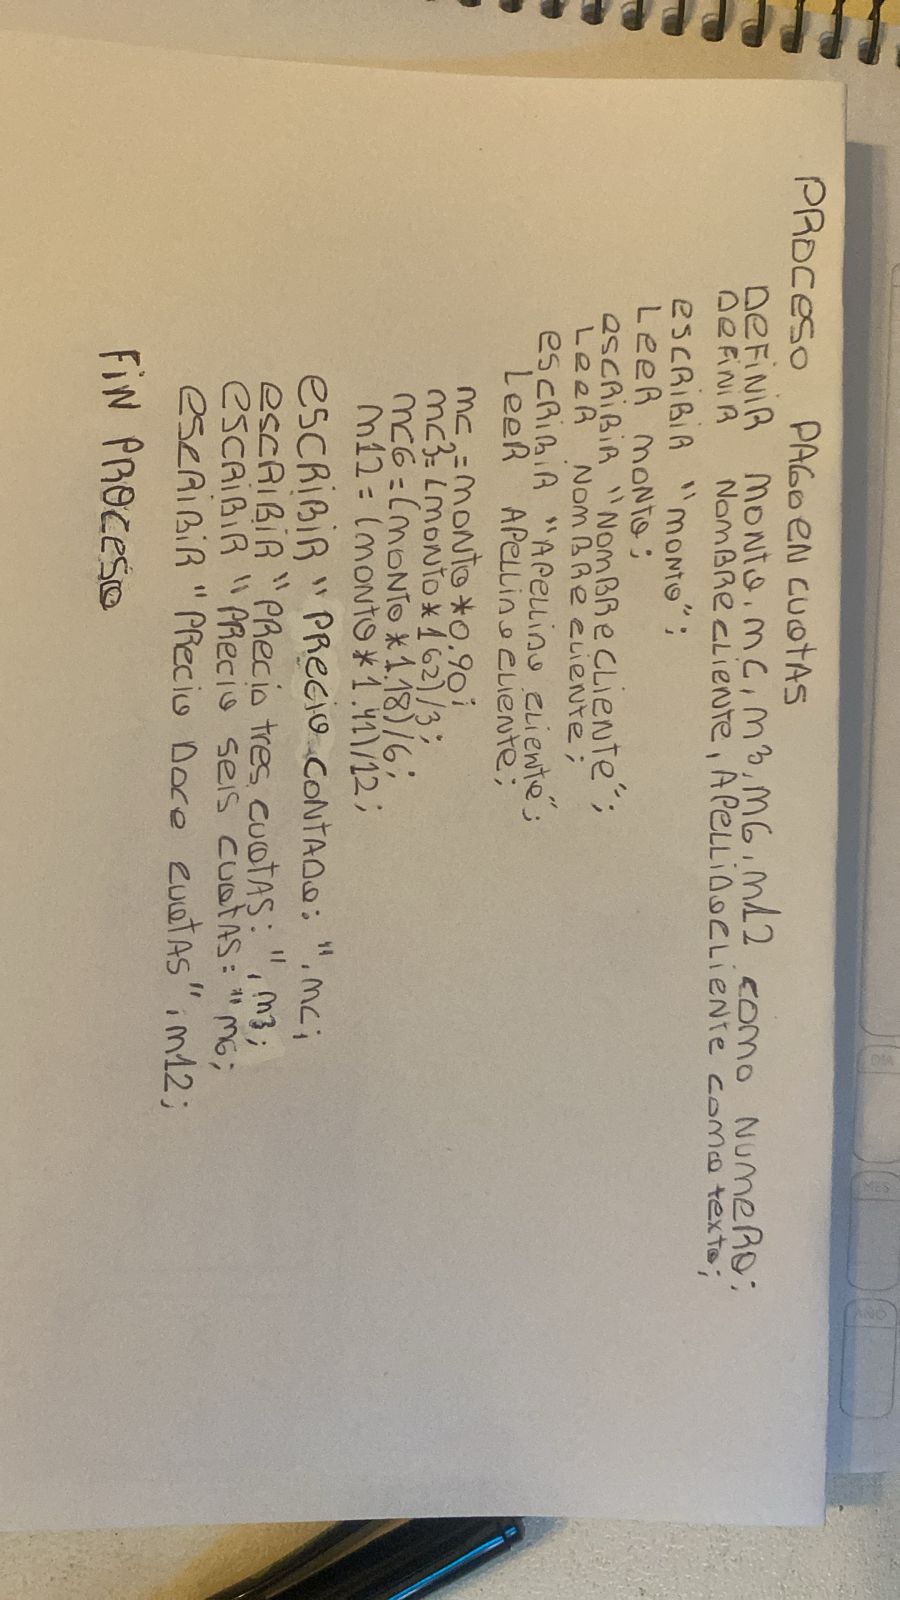 PROCESO PAGOENCUOTAS
DEFINIR MONTO, MC, M3, M6, M12 COMO NUMERO;
DEFINIR NOMBRECLIENTE, APELLIDOCLIENTE COMO TEXTO;
ESCRIBIR "MONTO";
LEER MONTO;
ESCRIBIR "NOMBRECLIENTE";
LEER NOMBRECLIENTE;
ESCRIBIR "APELLIDO CLIENTE";
LEER APELLIDOCLIENTE;
MC=MONTO*0.90;
MC3=(MONTO*162)/3;
MC6=(MONTO*1.18)/6;
M12=(MONTO*1.41)/12;
ESCRIBIR "PRECIO CONTADO: ", MC;
ESCRIBIR "PRECIO TRES CUOTAS: ", M3;
ESCRIBIR "PRECIO SEIS CUOTAS: " M6;
ESCRIBIR "PRECIO DOCE CUOTAS", M12;
FIN PROCESO